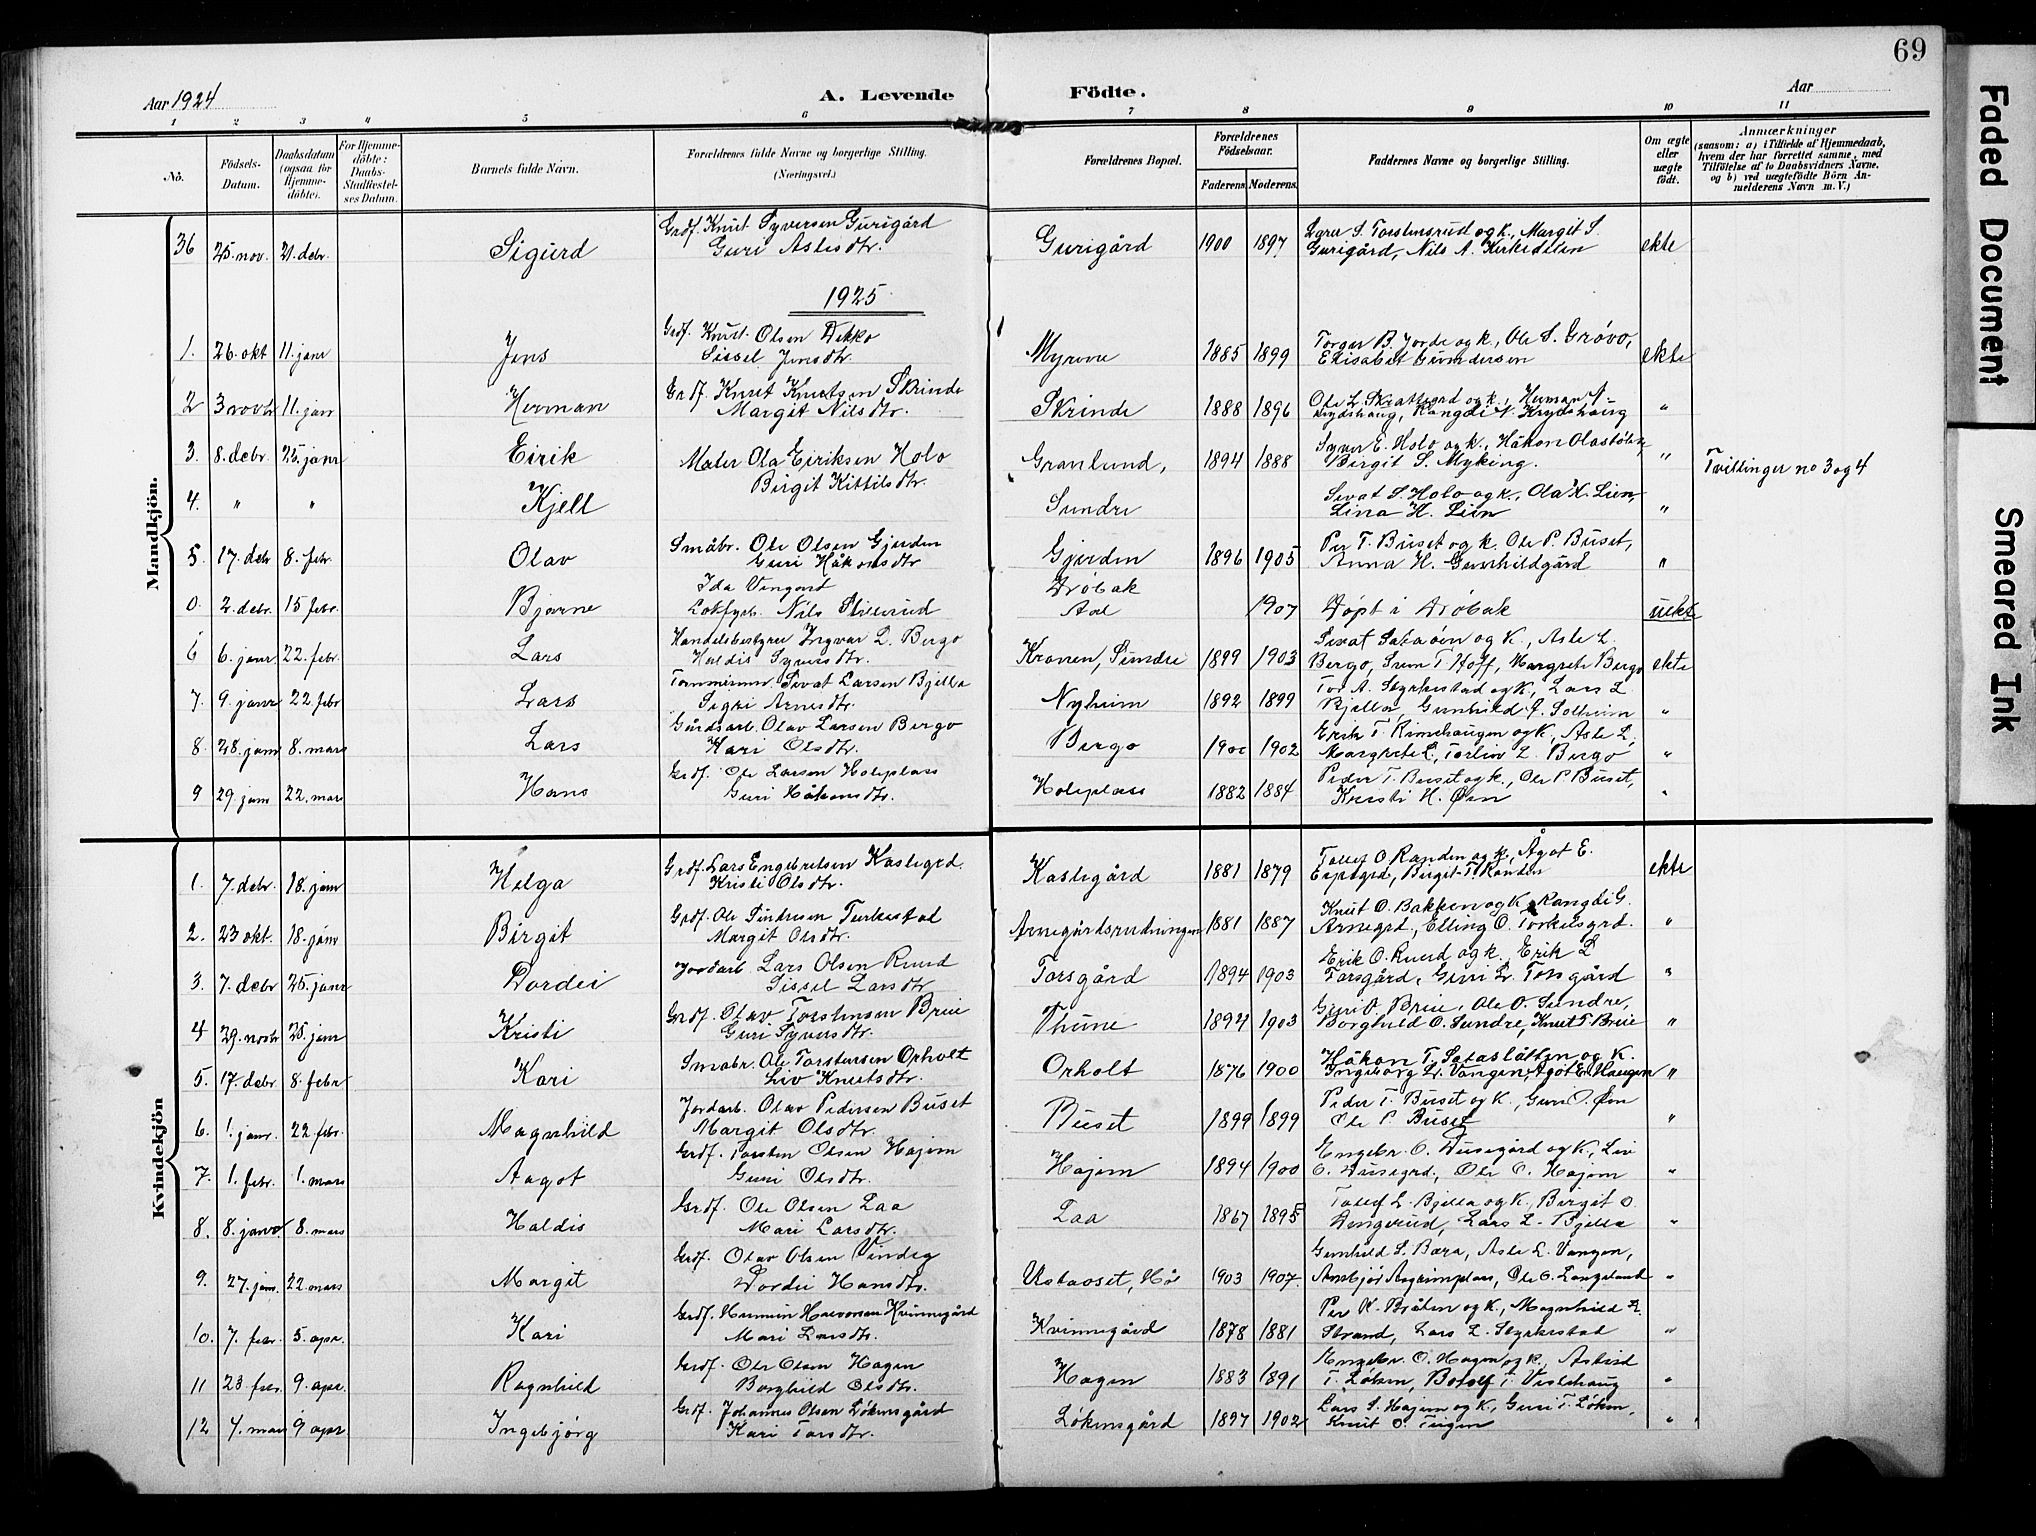 69
Aar 1924
A. Levende Födte.
Aar
1 2 3 4 5 6 7 8 9 10 11
No.
Födsels-Datum.
Daabsdatum (ogsaa for Hjemme-döbte).
For Hjemme-döbte: Daabs-Stadfæstel-ses Datum.
Barnets fulde Navn.
Forældrenes fulde Navne og borgerlige Stilling.
(Næringsvei.)
Forældrenes Bopæl.
Forældrenes Födselsaar.
Faderens. Moderens.
Faddernes Navne og borgerlige Stilling.
Om ægte eller uægte födt.
Anmærkninger
(saasom: a) i Tilfælde af Hjemmedaab, hvem der har forrettet samme, med Tilföielse af to Daabsvidners Navne. og b) ved uægtefödte Börn Anmelderens Navn m. V.)
Mandkjön.
36 25. nov. 21. debr. Sigurd Grdf. Knut Syversen Gurigård
Guri Aslesdtr. Gurigård 1900 1897 Torstensrud og k., Margit S.
Gurigård, Nils A. Kirkedelen ekte
1925
1. 26. okt 11. janr Jens Grdf. Knut Olsen Dekko
Sissel Jensdtr. Myrove 1885 1899 Torger B. Jorde og k., Ole S. Grøvo,
Elisabet Gundersen ekte
2 3 novbr 11. jan Herman Grdf. Knut Knutsen Skrinde
Margit Nilsdtr. Skrinde 1888 1896 Ole L. Skrattegard og k., Herman N.
Krydshaug, Rangdi N. Krydshaug "
3. 8. debr. 25. janr Eirik Maler Ola Eiriksen Holo
Birgit Kittilsdtr. Granlund, 1894 1888 Syver E. Holo og k., Håkon Olastølen
Birgit S. Myking. " Tvillinger no 3 og 4
4. " " Kjell Sundre Sevat S. Holo og k., Ola K. Lien,
Lina H. Lien "
5. 17. debr 8. febr. Olav Småbr. Ole Olsen Gjerden
Guri Håkonsdtr Gjerden 1896 1905 Per T. Buset og k. Ole P. Buset,
Anna H. Gunhildgård "
0. 2. debr. 15 febr. Bjarne Ida
Lokfyrb. Nils Drøbak
Aal 1907 Døpt i Drøbak uekte
6 6. janr 22. febr. Lars Handelsbestyrer Ingvar L. Bergo
Haldis Syversdtr. Kronen, Sundre 1899 1903 Sevat og k., Asle L.
Bergo, Svein T. Hoff, Margrete Bergo ekte
7. 9. janr 22 febr Lars Tømmermn. Sevat Larsen Bjella
Sigri Arnesdtr. Nyheim 1892 1899 Tor A. Styrkestad og k., Lars L
Bjella, Gunhild A. Solheim "
8. 28. janr 8. mars Lars Gårdsarb. Olav Larsen Bergo
Kari Olsdtr. Bergo 1902 Erik T. Rimehaugen og k., Asle L.,
Margrete L., Torleiv L. Bergo "
9 29. jan 22. mars Hans Grdf. Ole Larsen Holeplass
Guri Håkonsdtr. Holeplass 1882 1884 Peder T. Buset og k., Ole P. Buset,
Kristi H. Øen "
Kvindekjön
1. 7. debr. 18. jan Helga Grdf. Lars Engebretsen Kaslegrd.
Kristi Olsdtr. Kaslegård 1881 1879 Tollef O. Randen og k., Ågot E.
Espegrd, Birgit T. Randen ekte
2. 23 okt. 18. janr Birgit Grdf. Ole Sindresen Turkestad
Margit Olsdtr. Arnegårdsrudningen 1881 1887 Knut O. Bakken og k. Rangdi G.
Arnegrd, Elling O. Torkelsgrd. "
3. 7. debr 25. janr Dordei Jordarb. Lars Olsen Ruud
Sissel Larsdtr Torsgård 1894 1903 Erik O. Ruud og k., Erik L
Torsgård, Guri L. Torsgård "
4 29. novbr 25. janr Kristi Grdf. Olav Torstensen Breie
Guri Syversdtr. Thune 1894 1903 Guri O. Breie, Ole O. Sundre,
Borghild O. Sundre, Knut T. Breie "
5. 17. debr 8. febr Kari Småbr. Ole Torstensen Orholt
Liv Knutsdtr. Orholt 1876 1900 Håkon T. Sataslåtten og k.
Ingeborg L. Vangen, Agot E. Haugen "
6. 1. janr. 22 febr. Magnhild Jordarb. Olav Pedersen Buset
Margit Olsdtr. Buset 1899 1899 Peder T. Buset og k., Guri O. Øen
Ole P. Buset "
7. 1. febr. 1. mars Aagot Grdf. Torsten Olsen Hajem
Guri Olsdtr. Hajem 1894 1900 Engebr. O. Dusegård og k., Liv
O. Dusegrd, Ole O. Hajem "
8. 8. janr 8. mars Haldis Grdf. Ole Olsen Laa
Mari Larsdtr. Laa 1867 1895 Tollef L. Bjella og k., Birgit O.
Dengerud, Lars L. Bjella "
9. 27. jan. 22 mars Margit Grdf. Olav Olsen Vindeg
Dordei Hansdtr. Ustaoset, Hol 1903 1907. Gunhild S. Bæra, Asle L. Vangen,
Ambjør Asgrimplass, Ole O. Langeland "
10. 7. febr. 5. apr. Kari Grdf. Halvorsen Kvinnegård
Mari Larsdtr. Kvinnegård 1878 1881 Per K. Bråten og k., Magnhild L.
Strand, Lars L. Styrkestad "
11 23 febr. 9. apr. Ragnhild Grdf. Ole Olsen Hagen
Borghild Olsdtr. Hagen 1883 1891 Engebr. O. Hagen og k., Astrid
T. Løken, Botolf T. Veslehaug "
12 4. mars 9 apr Ingebjørg Grdf. Johannes Olsen Løkensgård
Kari Torsdtr. Løkensgård 1897 1902 Lars S. Hajem og k., Guri T. Løken,
Knut O. Teigen "
Faded Document
Smeared Ink